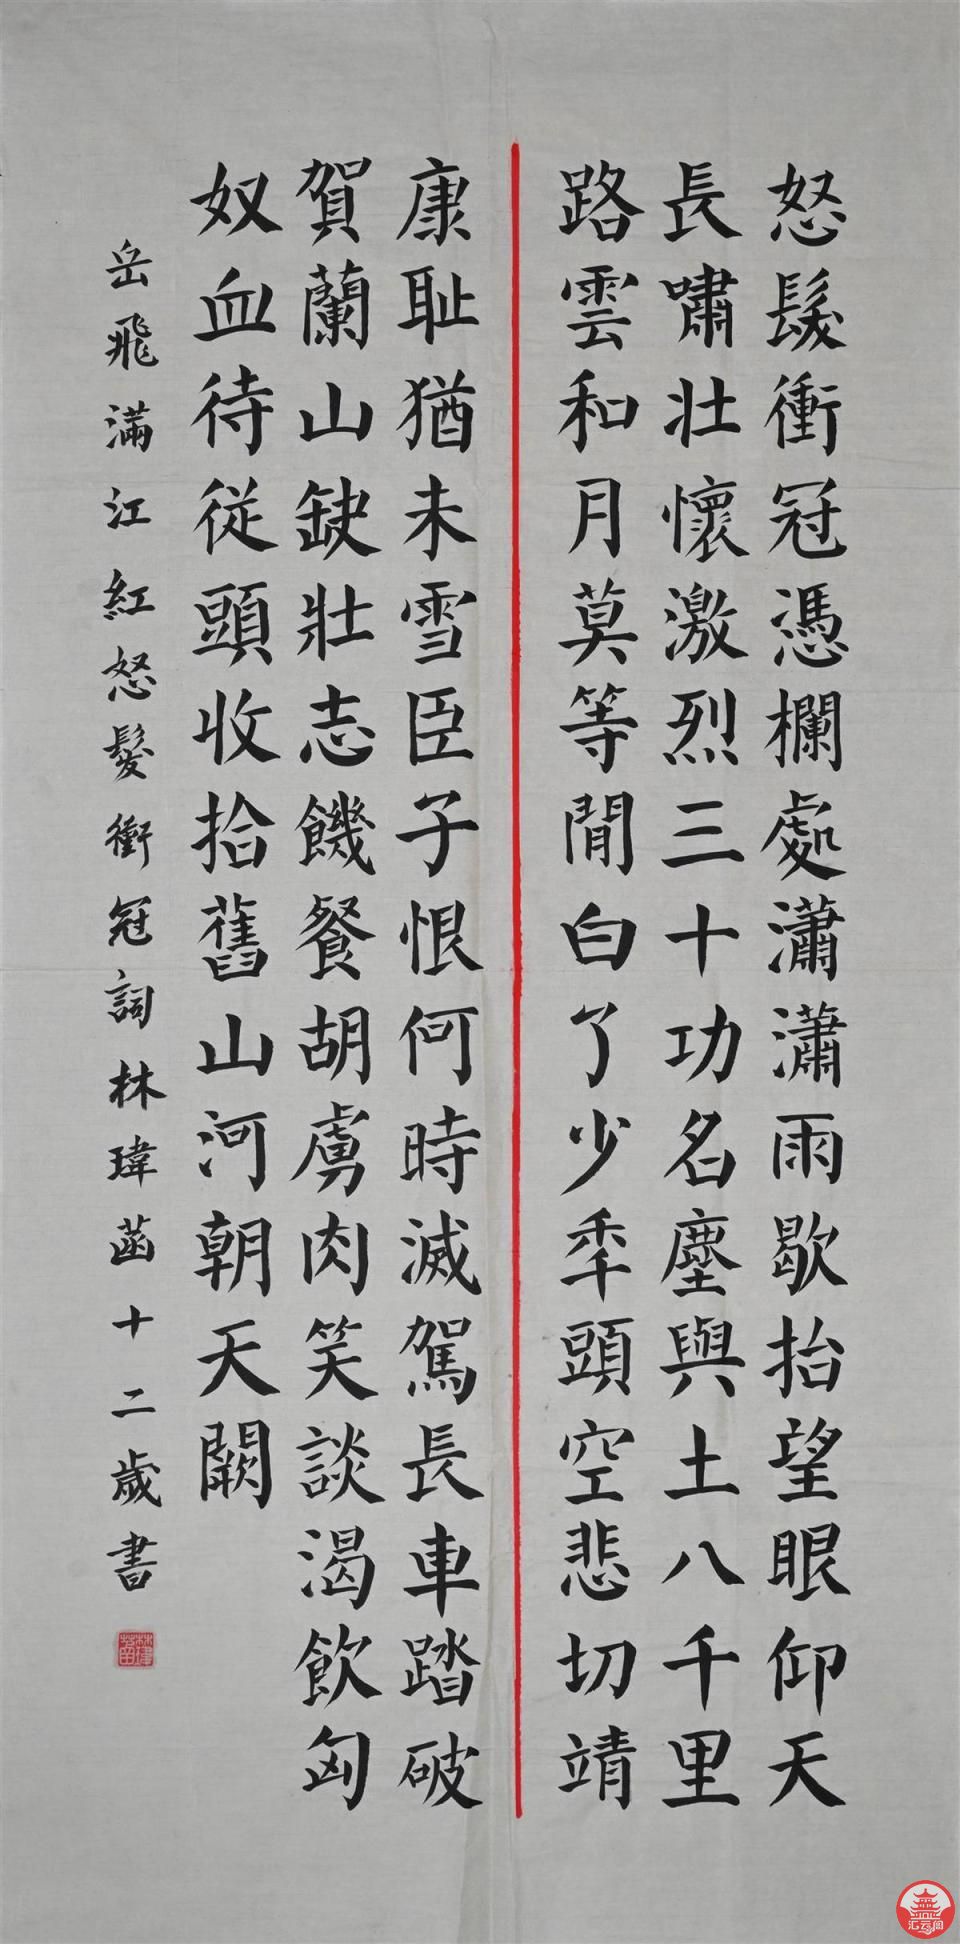 怒髮衝冠憑欄處瀟瀟雨歇抬望眼仰天
長嘯壯懷激烈三十功名塵與土八千里
路雲和月莫等閒白了少秊頭空悲切靖
康耻猶未雪臣子恨何時滅駕長車踏破
賀蘭山缺壯志饑餐胡虜肉笑談渴飲匈
奴血待従頭收拾舊山河朝天闕
岳飛滿江紅怒髮衝冠詞林瑋菡十二歲書
林瑋菡
汇云阁